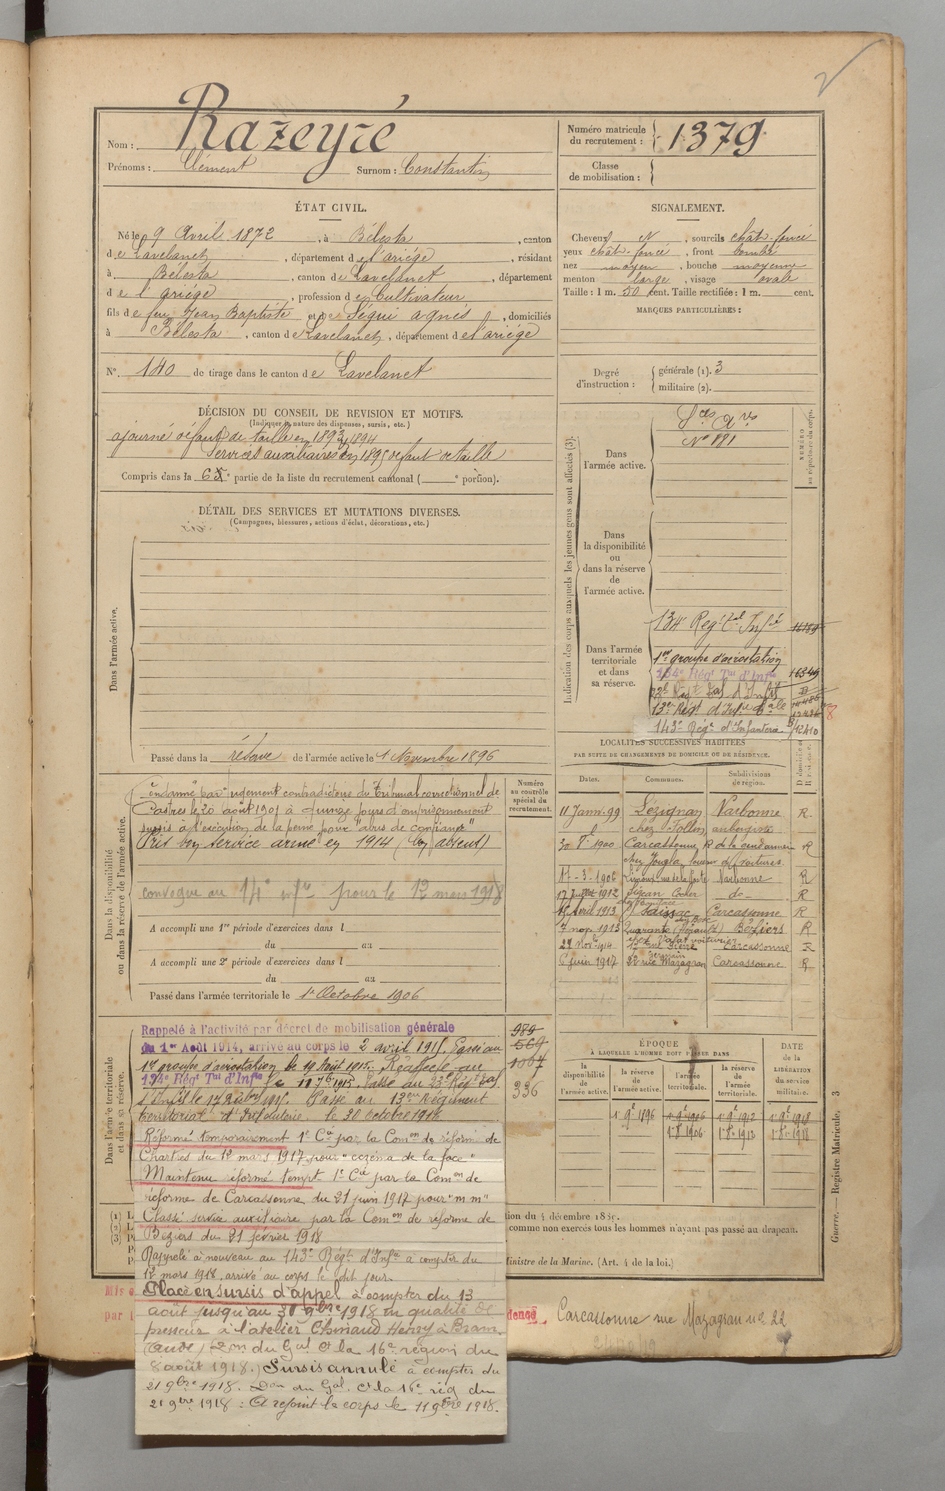 Nom : Razeyré
Prénoms : Clément Surnom : Constantin
Numéro matricule du recrutement : 1379
Classe de mobilisation :
ÉTAT CIVIL.
Né le 9 Avril 1872, à Bélesta, canton
de Lavelanet, département de l'ariége, résidant
à Bélesta, canton de Lavelanet, département
de l'ariége, profession de Cultivateur
fils de feu Jean Baptiste et deSégui agnès, domiciliés
à Bélesta, canton de Lavelanet, département de l'ariége
N° 140 de tirage dans le canton de Lavelanet
SIGNALEMENT.
Cheveux N, sourcils chât-foncé
yeux chât-foncé, front bombé
nez moyen, bouche moyenne
menton large, visage ovale
Taille : 1 m. 50 cent. Taille rectifiée : 1 m. cent.
MARQUES PARTICULIÈRES :
Degré d'instruction : générale (1). 3
militaire (2).
DÉCISION DU CONSEIL DE REVISION ET MOTIFS.
(Indiquer la nature des dispenses, sursis, etc.)
ajourné défaut de taille en 1893, 1894
Services auxiliaires en 1895 défaut de taille
Compris dans la 6e partie de la liste du recrutement cantonal ( e portion).
DÉTAIL DES SERVICES ET MUTATIONS DIVERSES.
(Campagnes, blessures, actions d'éclat, décorations, etc.)
Dans l'armée active.
Passé dans la réserve de l'armée active le 1 Novembre 1896
Indication des corps auxquels les jeunes gens sont affectés (3).
NUMÉRO au répertoire du corps.
Dans l'armée active.
Sces Ares
N° 181
Dans la disponibilité ou dans la réserve de l'armée active.
Dans l'armée territoriale et dans sa réserve.
134e Régt tal Infie
1er groupe d'aérostation 16349
134e Régt Tal d'Infie
13e Régt d'Infie tale
143e Régt d'Infanterie 12410
Dans la disponibilité ou dans la réserve de l'armée active.
Condamné par jugement contradictoire du Tribunal correctionnel de
Castres le 20 août 1901 à quinze jours d'emprisonnement
sursis à l'exécution de la peine pour "abus de confiance"
Pris bon service armé en 1914 (bon absent)
convoqué au 14e infie pour le 12 mars 1918
A accompli une 1re période d'exercices dans l
du au
A accompli une 2e période d'exercices dans l
du au
Passé dans l'armée territoriale le 1er Octobre 1906
Numéro au contrôle spécial du recrutement.
LOCALITÉS SUCCESSIVES HABITÉES
PAR SUITE DE CHANGEMENTS DE DOMICILE OU DE RÉSIDENCE.
Dates. Communes. Subdivisions de région. Domicile ou Résidence.
11 Janv. 99 Lézignan Narbonne R
aubergiste
1900 Carcassonne R de la Gendarmerie R
chez Jougla, loueur de voitures
3-1906 Narbonne R
17 Juillet 1912 Sigean do R
15 Avril 1913 Saissac Carcassonne R
7 nov. 1913 Quarante (Hérault) Béziers R
29 Nov. 1914 Carcassonne R
6 Juin 1917 22 rue Mazagran Carcassonne R
Dans l'armée territoriale et dans sa réserve.
Rappelé à l'activité par décret de mobilisation générale
du 1er Août 1914, arrivé au corps le 2 avril 1915. Passé au
1er groupe d'aérostation le 19 Août 1915. Réaffecté au
134e Régt Tal d'Infie le 11 7bre 1915. Passé au 23e Régt tal
d'Infie le 17 1915. Passé au 13eme Régiment
territorial d'Infanterie le 30 octobre 1916
989
669
1067
336
Réformé temporairement 1e Cie par la Comon de réforme de
Chartres du 12 mars 1917 pour "eczéma de la face"
Maintenu réformé tempt 1e Cie par la Comon de
réforme de Carcassonne du 21 juin 1917 pour "m m"
Classé service auxiliaire par la Comon de réforme de
Béziers du 21 février 1918
Rappelé à nouveau au 143e Régt d'Infie à compter du
12 mars 1918, arrivé au corps le dit jour.
Placé en sursis d'appel à compter du 13
août jusqu'au 31 1918 en qualité de
presseur à l'atelier Henry à Bram
(Aude) Don du Gal Ct la 16e région du
8 août 1918. Sursis annulé à compter du
21 9bre 1918. Don du Gal Ct la 16e rég du
21 9bre 1918 : A rejoint le corps le 11 9bre 1918.
ÉPOQUE
À LAQUELLE L'HOMME DOIT PASSER DANS
la disponibilité de l'armée active. la réserve de l'armée active. l'armée territoriale. la réserve de l'armée territoriale.
DATE de la LIBÉRATION du service militaire.
1-9e 1896 1-9e 1906 1-9e 1912 1-9e 1918
1-8-1906 1-8-1912 1-8-1918
tion du 4 décembre 18
comme non exercés tous les hommes n'ayant pas passé au drapeau.
Ministre de la Marine. (Art. 4 de la loi.)
Guerre. — Registre Matricule. 3
dence Carcassonne rue Mazagran n° 22